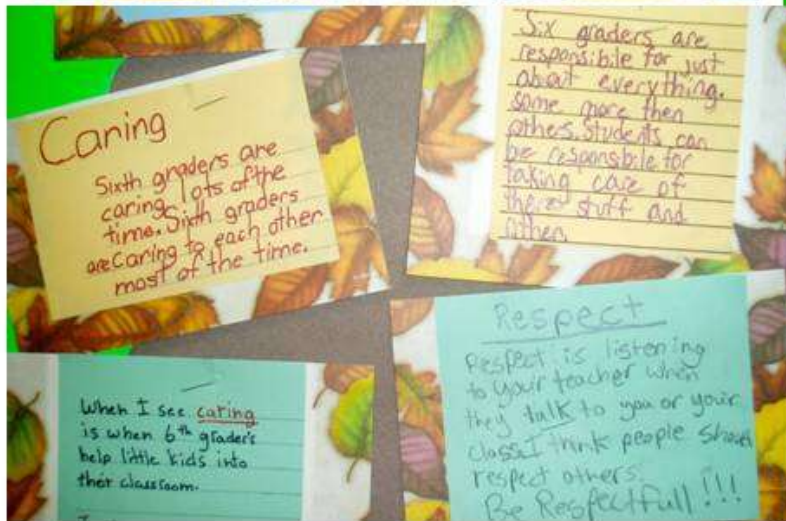 Caring
Sixth graders are
caring lots of the
time. Sixth graders
are Caring to each other
most of the time.
Six graders are
responsibile for just
about everything.
some more then
others. Students can
be responsbile for
taking care of
there stuff and
When I see caring
is when 6th grader's
help little kids into
ther classroom.
Respect
Respect is listening
to your teacher when
they talk to you or your
class. I think people should
respect others.
Be Respectfull!!!